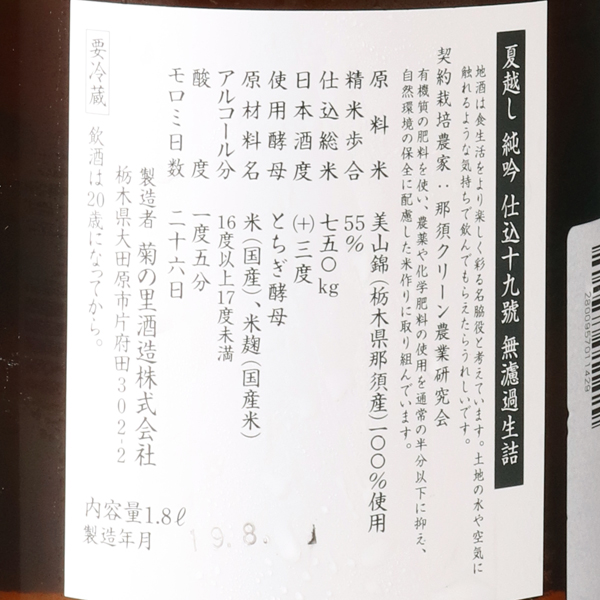 夏越し 純吟 仕込十九號 無濾過生詰
地酒は食生活をより楽しく彩る名脇役と考えています。土地の水や空気に
触れるような気持ちで飲んでもらえたらうれしいです。
契約栽培農家:那須クリーン農業研究会
有機質の肥料を使い、農薬や化学肥料の使用を通常の半分以下に抑え、
自然環境の保全に配慮した米作りに取り組んでいます。
原料米 美山錦(栃木県那須産)一〇〇%使用
精米歩合 55%
仕込総米 七五〇kg
日本酒度 (+)三度
使用酵母 とちぎ酵母
原材料名 米(国産)、米麹(国産米)
アルコール分 16度以上17度未満
酸度 一度五分
モロミ日数 二十六日
製造者 菊の里酒造株式会社
栃木県大田原市片府田302-2
要冷蔵 飲酒は20歳になってから。
内容量1.8ℓ
製造年月 19.8.
2800957011229